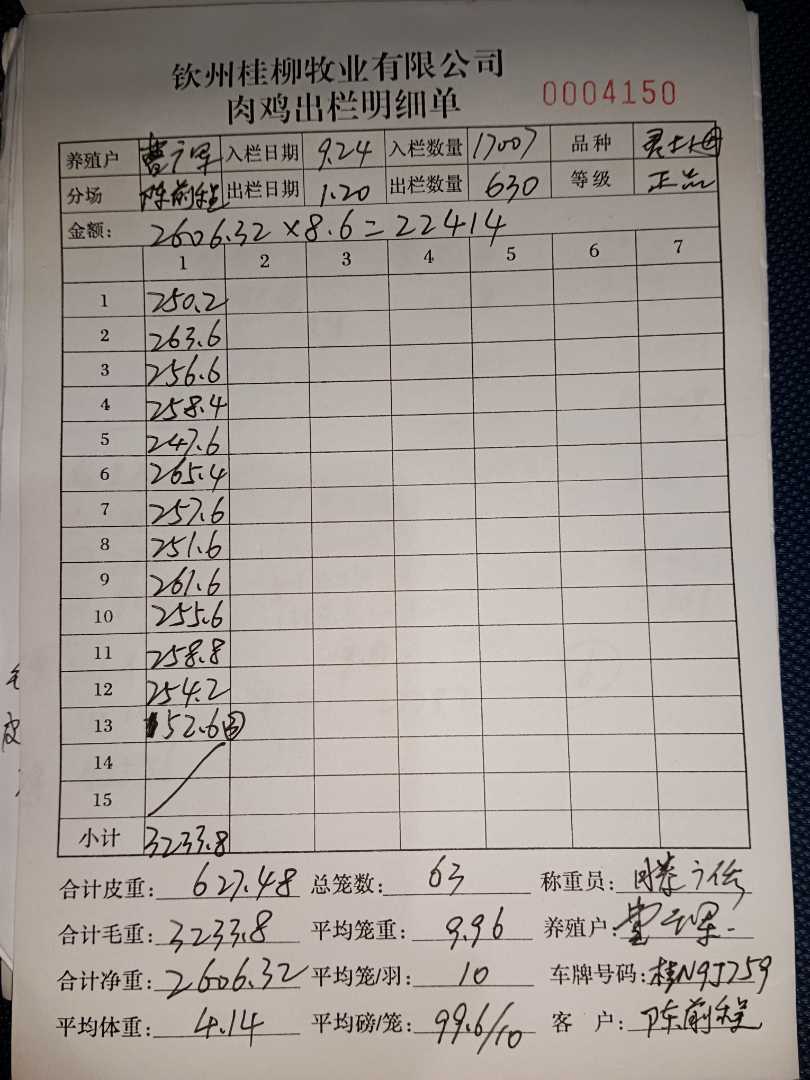 钦州桂柳牧业有限公司
肉鸡出栏明细单 0004150
养殖户 曹 入栏日期 9.24 入栏数量 17007 品种
分场 陈前程 出栏日期 1.20 出栏数量 630 等级 正品
金额: 2606.32×8.6=22414
1 2 3 4 5 6 7
1 250.2
2 263.6
3 256.6
4 258.4
5 247.6
6 265.4
7 257.6
8 251.6
9 261.6
10 255.6
11 258.8
12 254.2
13 152.6③
14
15
小计 3233.8
合计皮重: 627.48 总笼数: 63 称重员:
合计毛重: 3233.8 平均笼重: 9.96 养殖户:
合计净重: 2606.32 平均笼/羽: 10 车牌号码: 桂N9J759
平均体重: 4.14 平均磅/笼: 99.6/10 客 户: 陈前程
皮